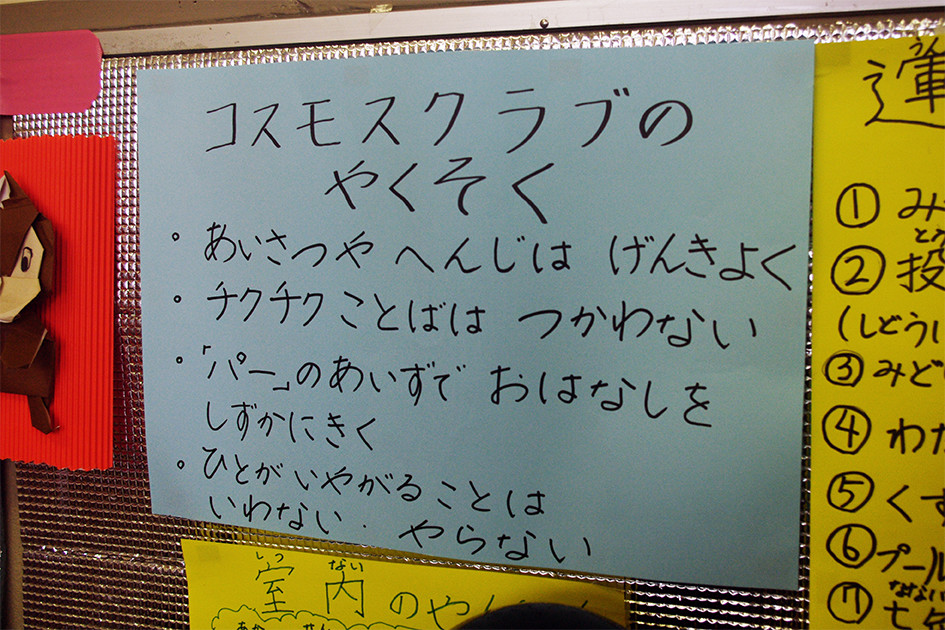 コスモスクラブの
やくそく
・あいさつや へんじは げんきよく
・チクチクことばは つかわない
・「パー」のあいずで おはなしを
しずかにきく
・ひとがいやがることは
いわない. やらない
しつ ない
室内のや
運
① み
② 投
(しどうい
③ みど
④ わた
⑤ くす
⑥ プール
⑦ 七